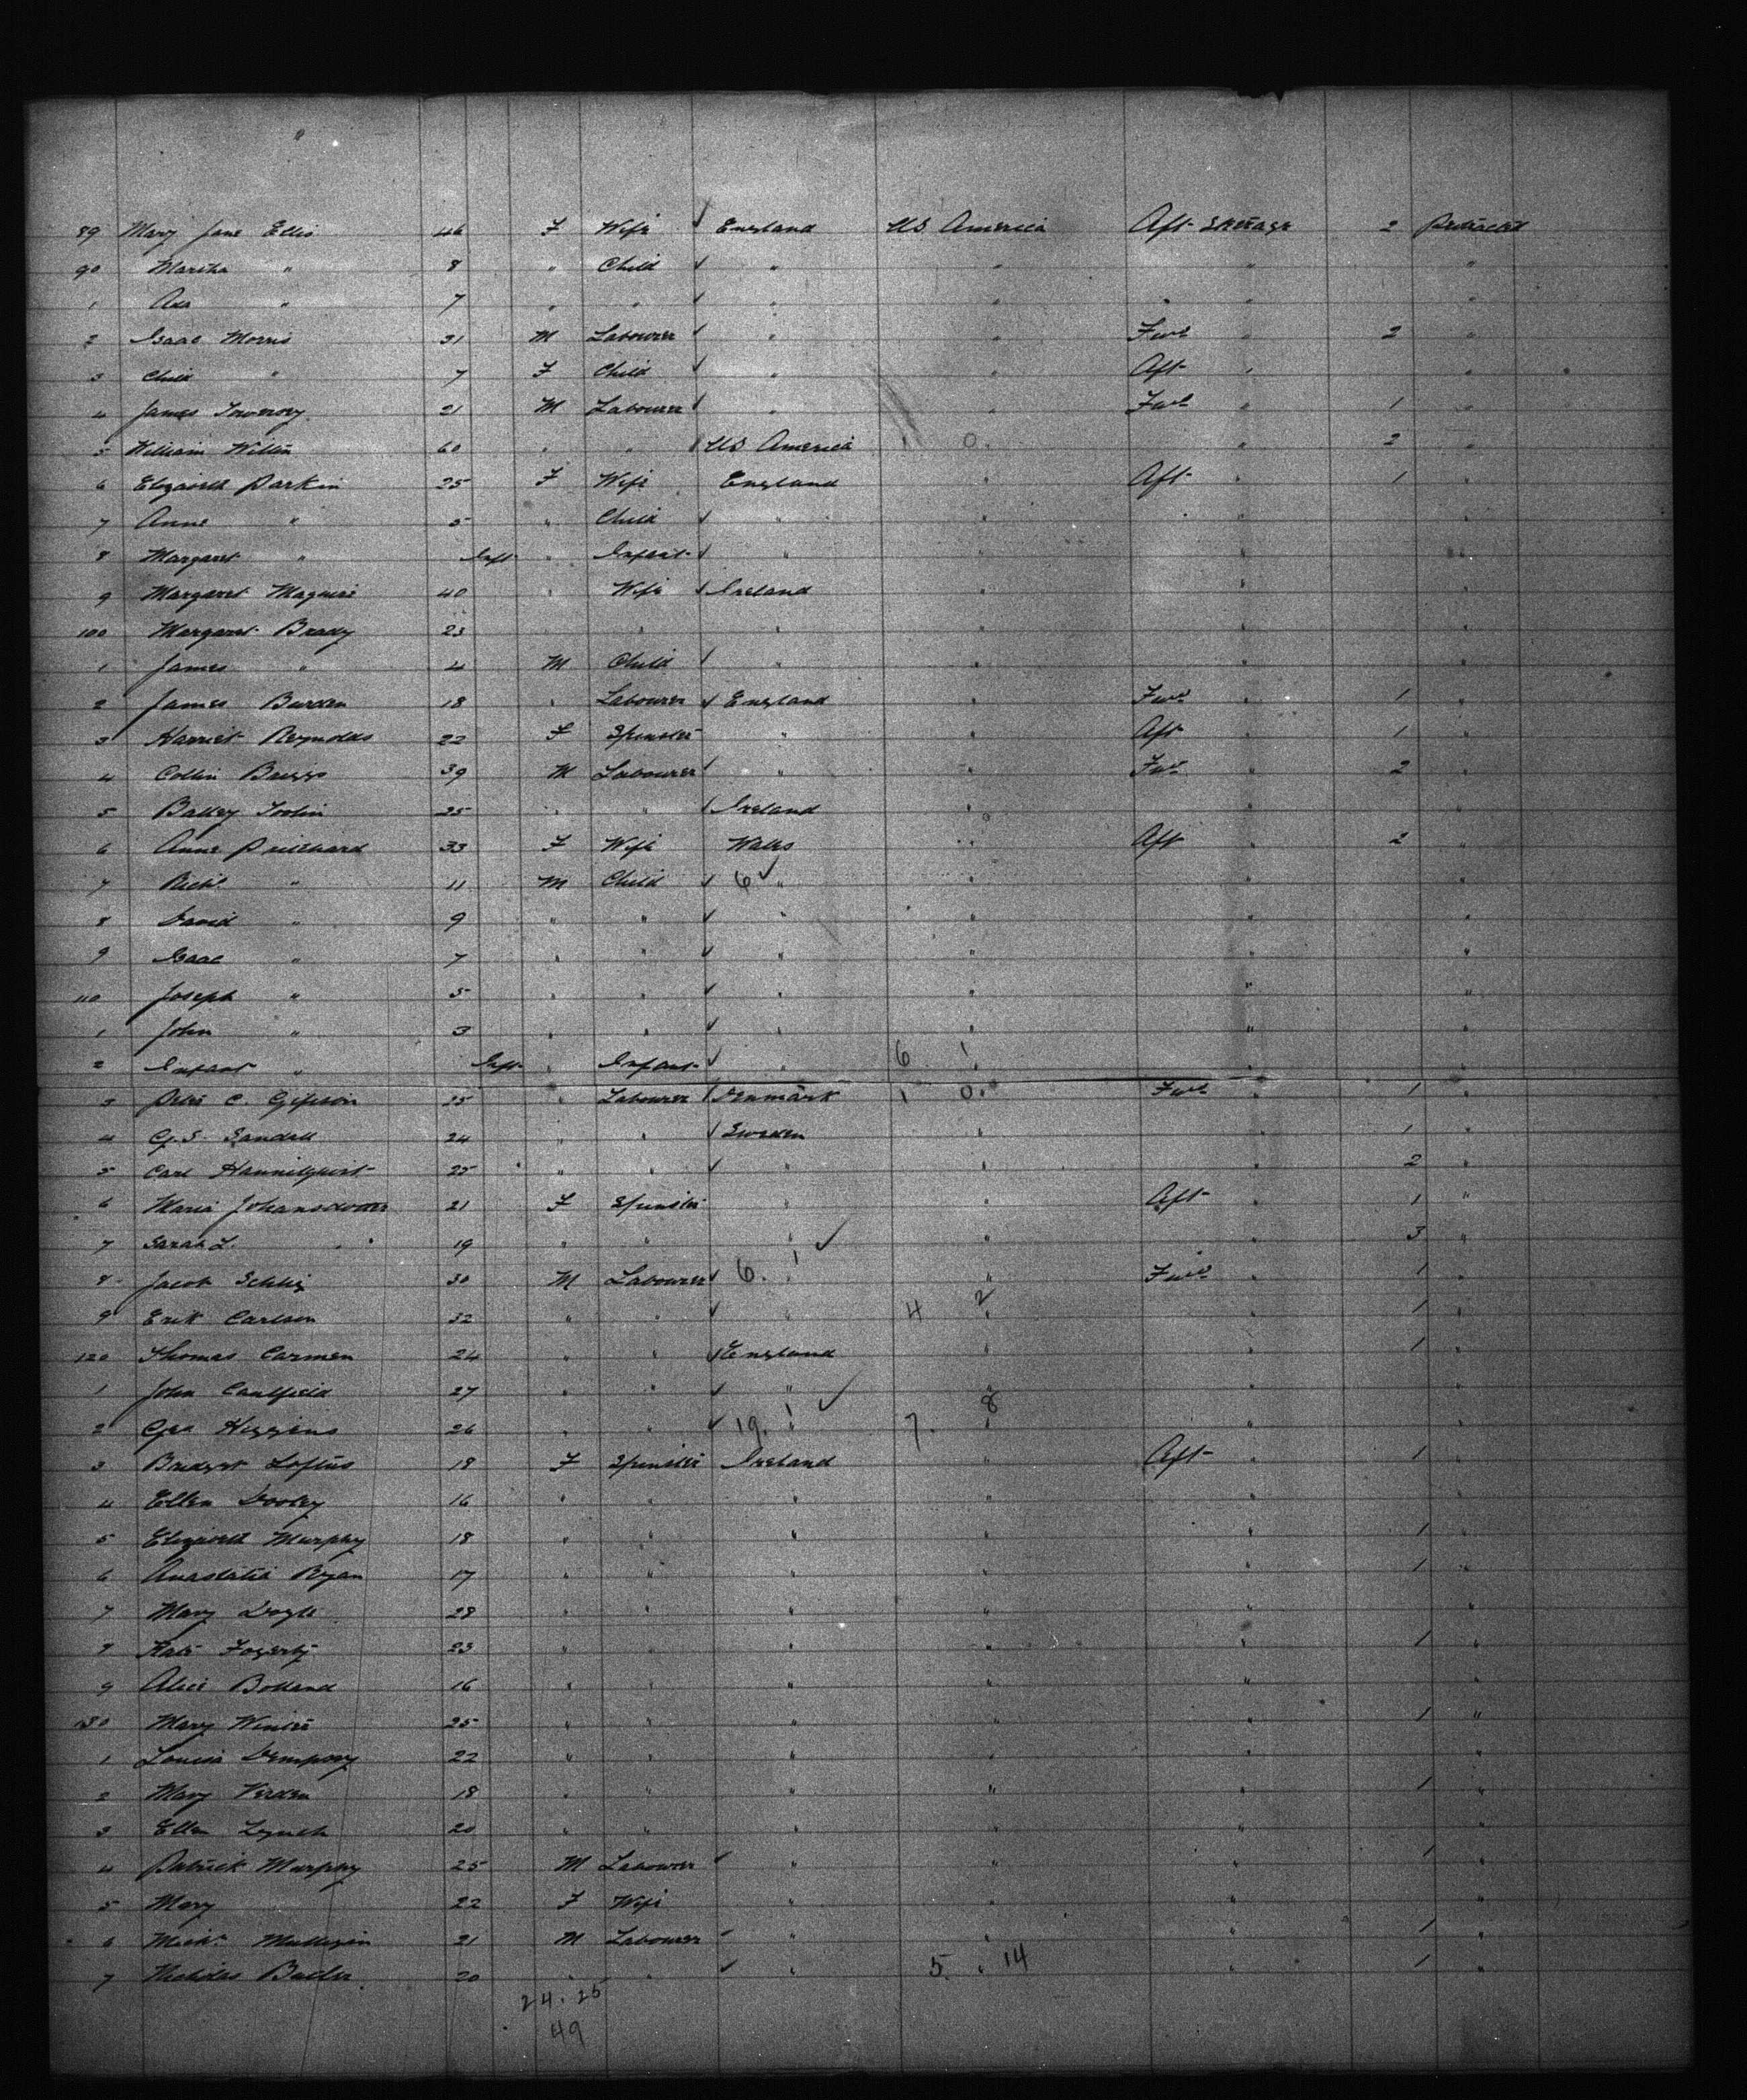 89 Mary Jane Ellis 46 F Wife ✓ England US America Aft Steerage 2 Protracted
90 Martha " 8 " Child ✓ " " " "
1 Ada " 7 " " ✓ " " " " "
2 Isaac Morris 31 M Labourer ✓ " " Fwd " 2 "
3 Child " 7 F Child ✓ " " Aft " "
4 James 21 M Labourer ✓ " " Fwd " 1 "
5 William 60 " " US America 1 0 " 2 "
6 Elizabeth Parkin 25 F Wife England " Aft " 1 "
7 Anne " 5 " Child ✓ " " " "
8 Margaret " Inft " Infant ✓ " " " "
9 Margaret Maguire 40 " Wife ✓ Ireland " " "
100 Margaret Brady 23 " " " " " "
1 James " 4 M Child ✓ " " " "
2 James Burden 18 " Labourer ✓ England " Fwd " 1 "
3 Harriet Reynolds 22 F Spinster " " Aft " 1 "
4 Collin Briggs 39 M Labourer ✓ " " Fwd " 2 "
5 25 " " ✓ Ireland " " "
6 Anne Pritchard 33 F Wife Wales " Aft " 2 "
7 Richd " 11 M Child ✓ 6 ✓ " " " "
8 David " 9 " " ✓ " " " "
9 Isaac " 7 " " ✓ " " " "
110 Joseph " 5 " " ✓ " " " "
1 John " 3 " " ✓ " " " "
2 Infant " Inft " Infant ✓ " 6 1 " "
3 Peter C. 25 " Labourer ✓ Denmark 1 0 " Fwd " 1 "
4 Sandell 24 " " ✓ Sweden " " 1 "
5 Carl 25 " " ✓ " " " 2 "
6 Maria 21 F Spinster " " Aft " 1 "
7 Sarah L. " 19 " " " ✓ " " 3 "
8 Jacob 30 M Labourer ✓ 6. 1 " " Fwd " 1 "
9 Erik Carlson 32 " " ✓ " 4 2 " " 1 "
120 Thomas Carmen 24 " " ✓ England " " 1 "
1 John Caulfield 27 " " ✓ " ✓ " " "
2 Geo Higgins 26 " " ✓ 19. 1 " 7. 8 " " "
3 Bridget Loftus 18 F Spinster Ireland " Aft " 1 "
4 Ellen Dooley 16 " " " " " "
5 Elizabeth Murphy 18 " " " " " 1 "
6 Anastatia Ryan 17 " " " " " 1 "
7 Mary Doyle 28 " " " " " "
8 Kate Fogerty 23 " " " " " 1 "
9 Alice Bolland 16 " " " " " "
130 Mary Winter 25 " " " " " 1 "
1 Louisa Dempsey 22 " " " " " "
2 Mary 18 " " " " " 1 "
3 Ellen Lynch 20 " " " " " "
4 Patrick Murphy 25 M Labourer ✓ " " " 1 "
5 Mary 22 F Wife " " " "
6 Michl Mulligan 21 M Labourer ✓ " " " 1 "
7 Nicholas Butler 20 " " ✓ " 5. " 14 " 1 "
24. 25
49